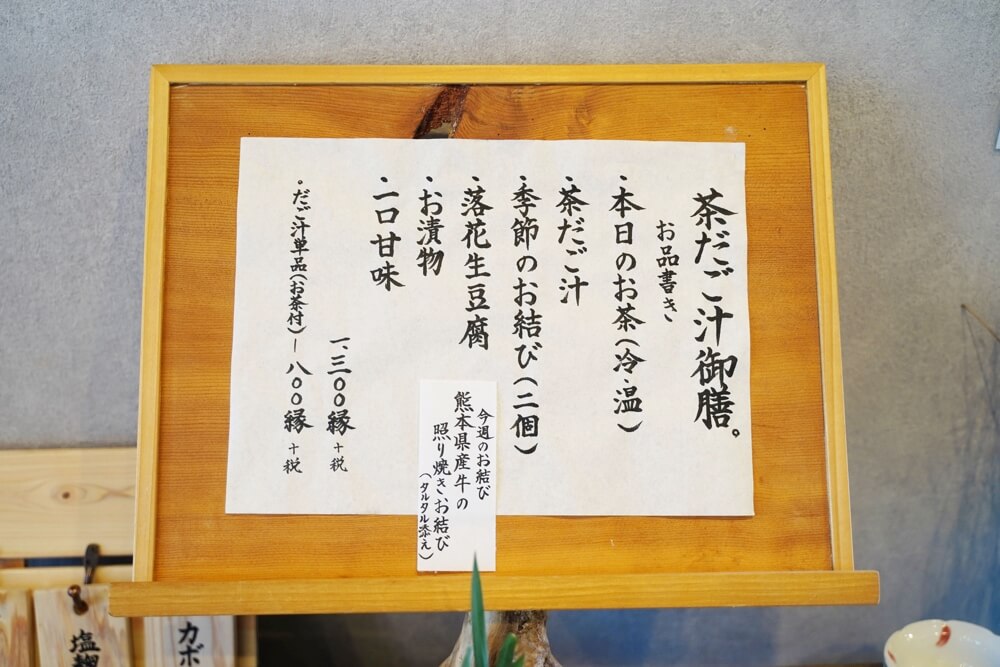 茶だご汁御膳。
お品書き
・本日のお茶(冷・温)
・茶だご汁
・季節のお結び(二個)
・落花生豆腐
・お漬物
・一口甘味
一、三〇〇縁+税
。だご汁単品(お茶付)ー八〇〇縁+税
今週のお結び
熊本県産牛の
照り焼きお結び
(タルタル添え)
塩麹
カボ